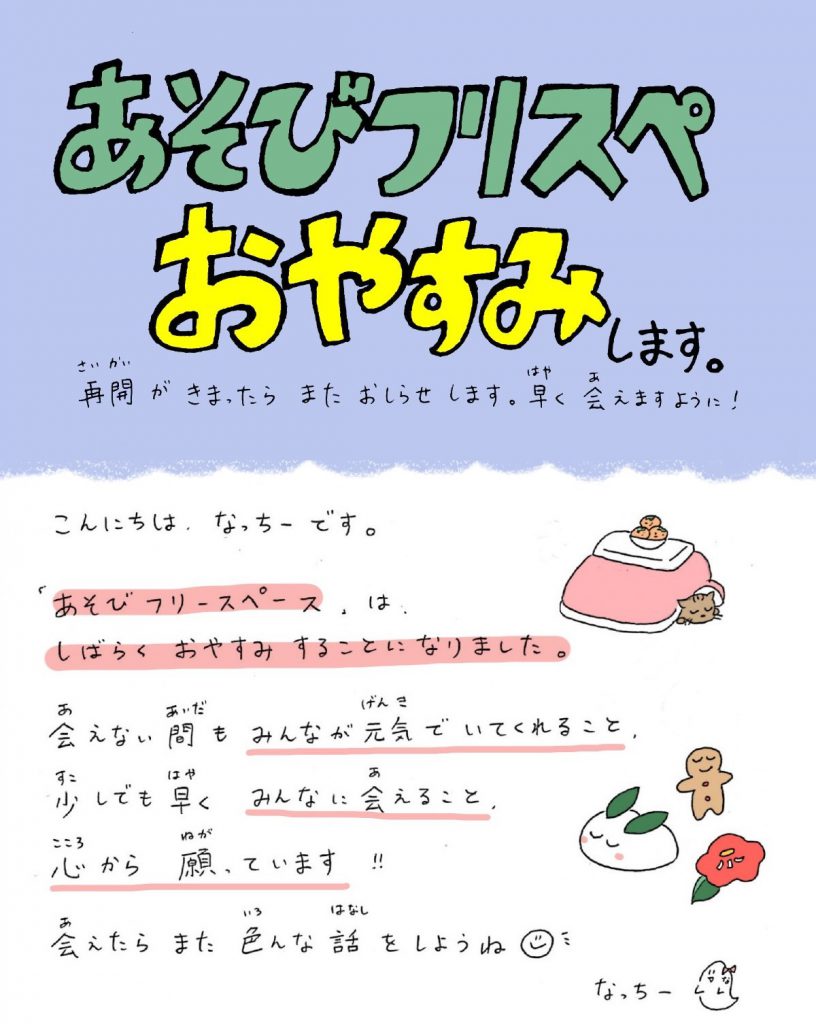 あそびフリスペ
おやすみします。
さいかい はや あ
再開がきまったらまたおしらせします。早く会えますように!
こんにちは、なっちーです。
「あそびフリースペース」は、
しばらくおやすみすることになりました。
あ あいだ げんき
会えない間もみんなが元気でいてくれること、
すこ はや あ
少しでも早くみんなに会えること、
こころ ねが
心から願っています!!
あ いろ はなし
会えたらまた色んな話をしようね
なっちー